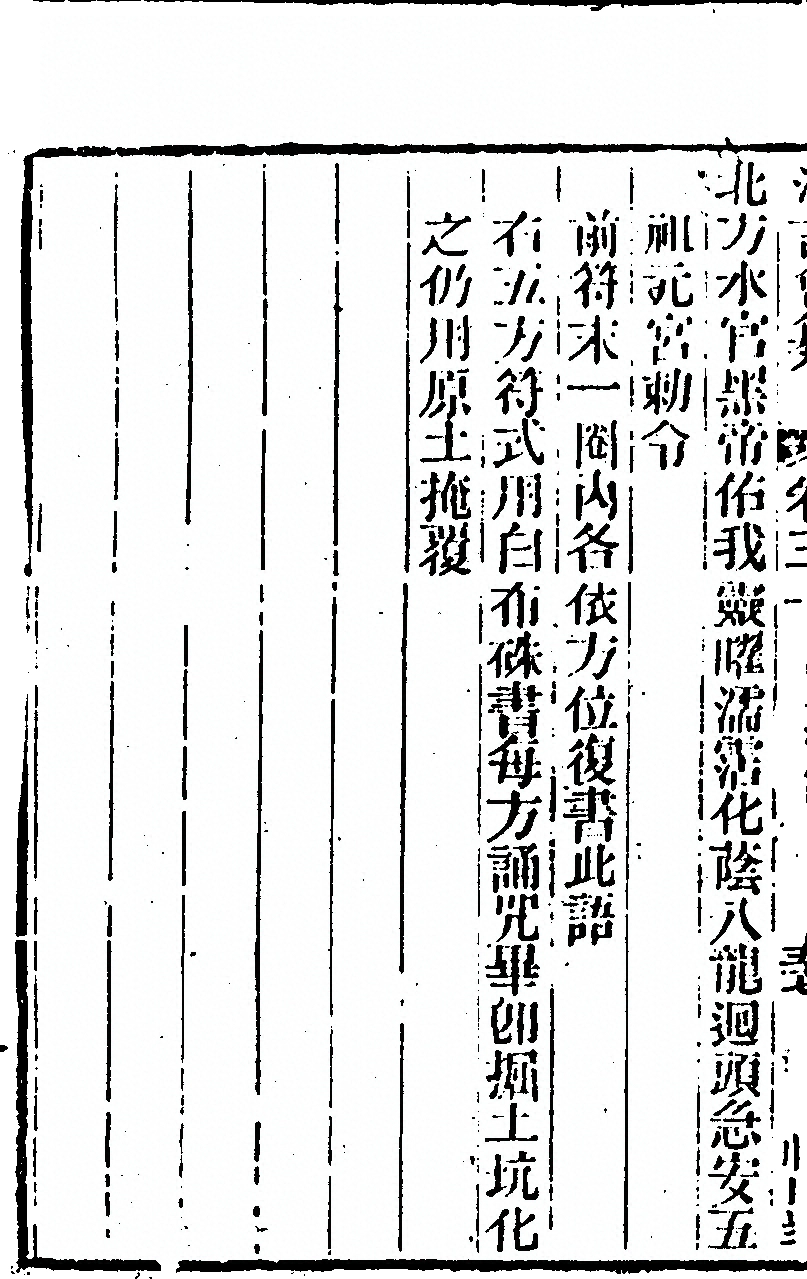 北方水官黑帝佑我靈曜濡霑化蔭八龍迴頭急安五
祖元宮勅令
前符末一圈內各依方位復書此語
右五方符式用白布硃書每方誦咒畢卽掘土坑化
之仍用原土掩覆